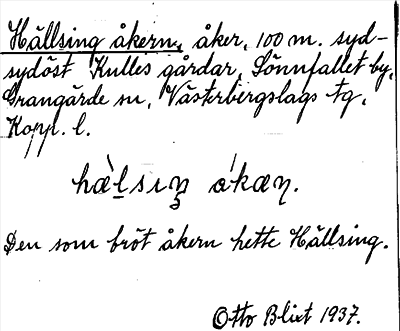 Hällsing åkern, åker, 100 m. syd-
sydöst Kulles gårdar, Sönnfallet by,
Grangärde sn, Västerbergslags tg,
Kopp. l.
hæ̀l̠siŋ ákæɳ.
Den som bröt åkern hette Hällsing.
Otto Blixt 1937.